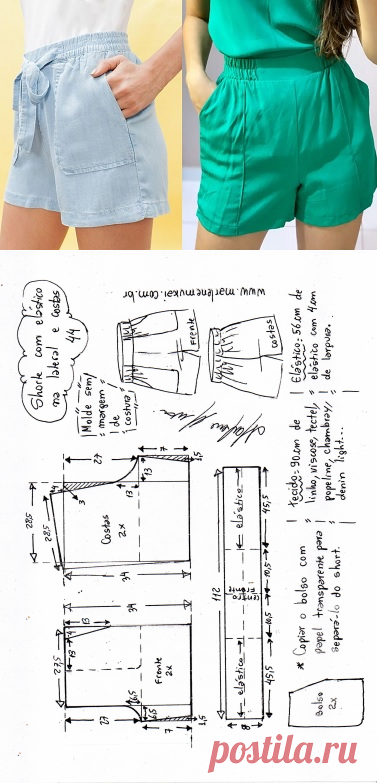 Shorte com elástico
na lateral e costas
44
www.marlenemukai.com.br
Molde sem
margem
de
costura
Frente
costas
27
7
1,5
13
13
4
3
28,5
28,5
Costas
2x
34
34
27,5
13
13
4
Frente
2x
6,5
6,5
27
7
1,5
112
elástico
centro
Frente
elástico
8
45,5
10,5
10,5
45,5
Elástico: 56cm de
elástico com 4cm
de largura..
tecido: 90cm de
linho, viscose, tectel,
popeline, chambray,
denin light...
* Copiar o bolso com
papel transparente para
separá-lo do short.
Bolso
2x
postila.ru